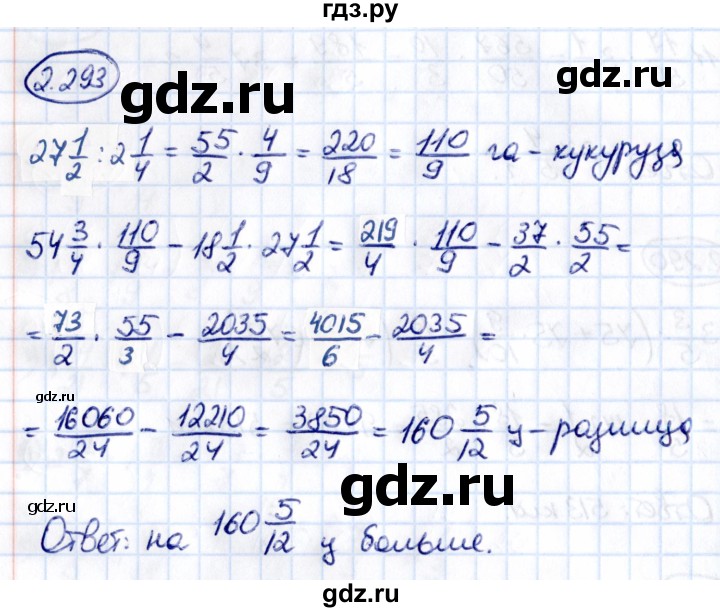 гдз.ру
2.293
gdz.ru
27 1/2 : 2 1/4 = 55/2 · 4/9 = 220/18 = 110/9 га - кукуруза
54 3/4 · 110/9 - 18 1/2 · 27 1/2 = 219/4 · 110/9 - 37/2 · 55/2 =
= 73/2 · 55/3 - 2035/4 = 4015/6 - 2035/4 =
gdz.ru
= 16060/24 - 12210/24 = 3850/24 = 160 5/12 ц - разница
gdz.ru
gdz.ru
Ответ: на 160 5/12 ц больше.
gdz.ru